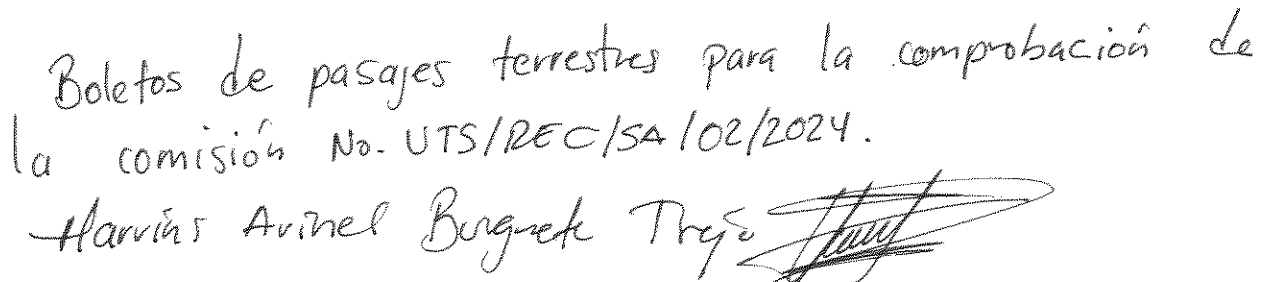 Boletos de pasajes terrestres para la comprobación de
la comisión No. UTS/REC/SA/02/2024.
Burguete Trejo